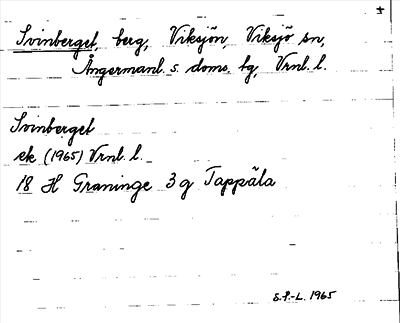 +
Svinberget, berg, Viksjön, Viksjö sn,
Ångermanl. s. doms. tg, Vrnl. l.
Svinberget
ek (1965) Vrnl. l.
18 H Graninge 3 g Tappäla
S.F.-L. 1965